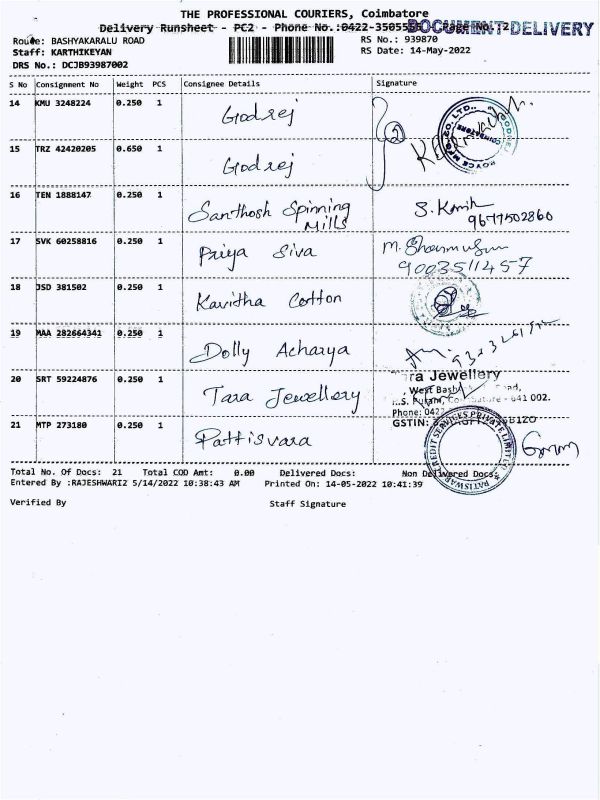 THE PROFESSIONAL COURIERS, Coimbatore
Delivery Runsheet - PC2 - Phone No.:0422-3505555 Page No.:2
DOCUMENT DELIVERY
Route: BASHYAKARALU ROAD RS No.: 939870
Staff: KARTHIKEYAN RS Date: 14-May-2022
DRS No.: DCJB93987002
S No Consignment No Weight PCS Consignee Details Signature
14 KMU 3248224 0.250 1 Godrej
15 TRZ 42420205 0.650 1 Godrej
16 TEN 1888147 0.250 1 Santhosh Spinning Mills
9677502860
17 SVK 60258816 0.250 1 Priya Siva
9003511457
18 JSD 381502 0.250 1 Kavitha Cotton
19 MAA 282664341 0.250 1 Dolly Acharya
20 SRT 59224876 0.250 1 Tara Jewellery
ra Jewellery
West Bash
641 002.
Phone: 0422
GSTIN:
21 MTP 273180 0.250 1 Pattisvara
CREDIT SERVICES PRIVATE LIMITED
Total No. Of Docs: 21 Total COD Amt: 0.00 Delivered Docs: Non Delivered Docs:
Entered By :RAJESHWARI2 5/14/2022 10:38:43 AM Printed On: 14-05-2022 10:41:39
Verified By Staff Signature